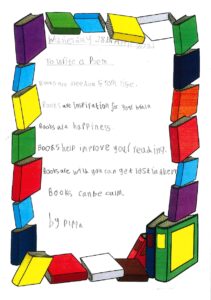 Wednesday
To write a Poem
Books are freedom from life.
Books are inspiration for your brain
Books are happiness.
Books help improve your reading.
Books are with you can get lost in them
Books can be calm
by pippa